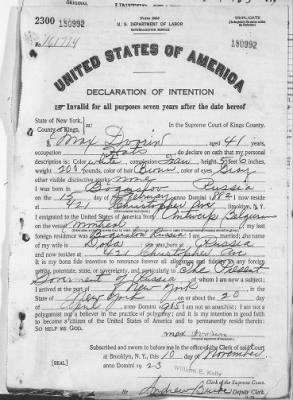 TRIPLICATE
Form 2203
2300 180992 U. S. DEPARTMENT OF LABOR 180992
NATURALIZATION SERVICE
No. 161774
UNITED STATES OF AMERICA
DECLARATION OF INTENTION
Invalid for all purposes seven years after the date hereof
State of New York,
County of Kings, ss: In the Supreme Court of Kings County.
I, Max, aged 41 years,
occupation, do declare on oath that my personal
description is: Color white, complexion, height 5 feet 6 inches,
weight 200 pounds, color of hair Brown, color of eyes Gray
other visible distinctive marks none
I was born in Russia
on the day of, anno Domini; I now reside
at 421 Christopher Ave, N.Y.
I emigrated to the United States of America from Antwerp Belgium
on the vessel Montreal; my last
foreign residence was Russia; I am married; the name
of my wife is Dora; she was born at Russia
and now resides at 421 Christopher Ave
It is my bona fide intention to renounce forever all allegiance and fidelity to any foreign
prince, potentate, state, or sovereignty, and particularly to The Present
Government of Russia of whom I am now a subject;
I arrived at the port of New York, in the
State of New York, on or about the 20 day
of, anno Domini; I am not an anarchist; I am not a
polygamist nor a believer in the practice of polygamy; and it is my intention in good faith
to become a citizen of the United States of America and to permanently reside therein:
SO HELP ME GOD.
Max
Subscribed and sworn to before me in the office of the Clerk of said Court
at Brooklyn, N. Y., this 10 day of November
anno Domini 1923
[SEAL]
William E. Kelly
Clerk of the Supreme Court.
By Andrew Clerk.